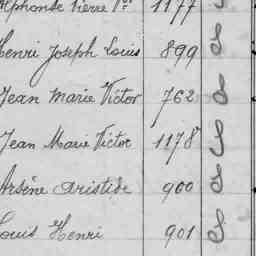 Alphonse Pierre 1177
Henri Joseph Louis 899
Jean Marie Victor 762
Jean Marie Victor 1178
Arsène Aristide 900
Louis Henri 901